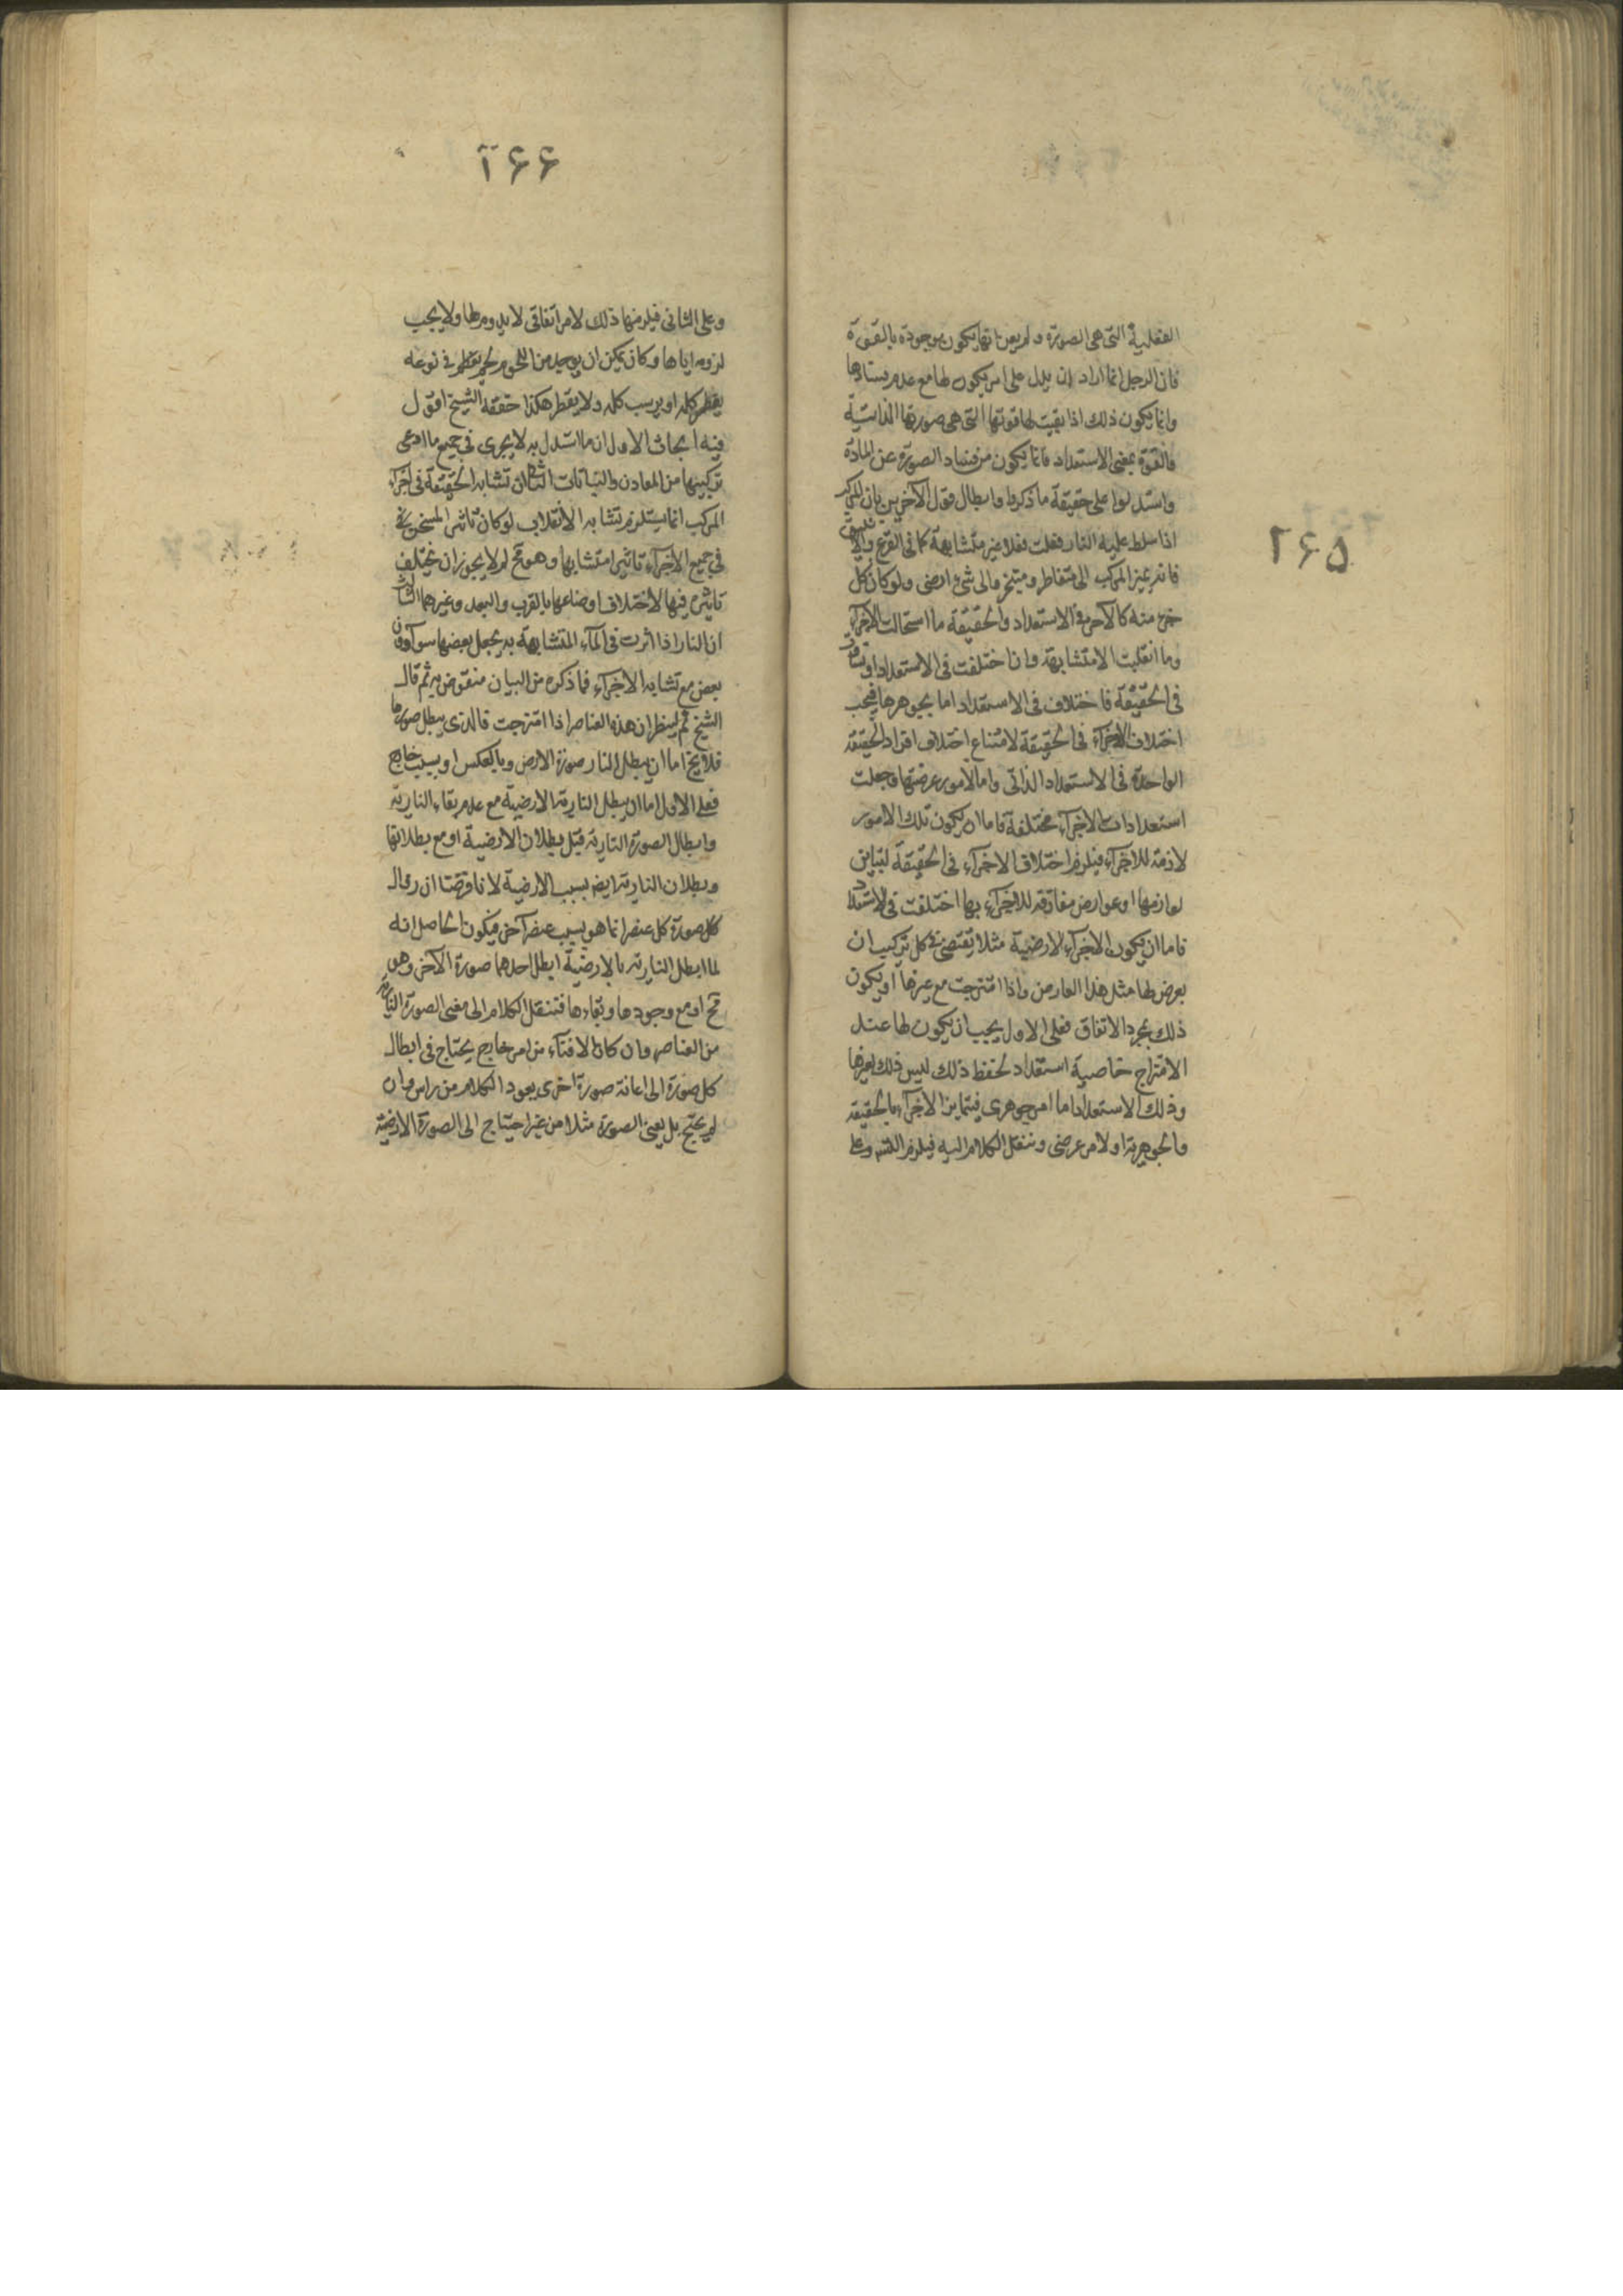 ۲۶۵
الفعلية التی هی الصورة ولم يعن انها يكون موجودة بالقوة
فان الرجل انما اراد ان يدل علی امر يكون لها مع عدم فسادها
وانما يكون ذلك اذا بقيت لها قوتها التی هی صورتها الذاتية
فالقوة بمعنی الاستعداد فانما يكون مع فساد الصورة عن المادة
واستدلوا علی حقيقة ما ذكروا وابطال قول الآخرين بان المركب
اذا سلط عليه النار فعلت فعلا غير متشابهة كما فی القرع والانبيق
فانه يميز المركب الی متقاطر ومتبخر والی شیء ارضی ولو كان كل
جزء منه كالآخر فی الاستعداد والحقيقة ما استحالت الاجزاء
وما انقلبت الا متشابهة وان اختلفت فی الاستعداد او تشابهت
فی الحقيقة فاختلاف فی الاستعداد اما بجوهرها فيجب
اختلاف الاجزاء فی الحقيقة لامتناع اختلاف افراد الحقيقة
الواحدة فی الاستعداد الذاتی واما لامور عرضتها فجعلت
استعدادات الاجزاء مختلفة فاما ان يكون تلك الامور
لازمة للاجزاء فيلزم اختلاف الاجزاء فی الحقيقة لتباين
لوازمها او عوارض مفارقة للاجزاء بها اختلفت فی الاستعداد
فاما ان يكون الاجزاء الارضية مثلا يقتضی فی كل تركيب ان
يعرض لها مثل هذا العارض واذا امتزجت مع غيرها او يكون
ذلك بمجرد الاتفاق فعلی الاول يجب ان يكون لها عند
الامتزاج خاصية استعداد لحفظ ذلك ليس ذلك لغيرها
وذلك الاستعداد اما امر جوهری فيتمايز الاجزاء بالحقيقة
والجوهرية او لامر عرضی وننقل الكلام اليه فيلزم التسلسل وعلی
۲۶۶
وعلی الثانی فيلزمها ذلك لامر اتفاقی لا يدوم لها ولا يجب
لزومه اياها وكان يمكن ان يوجد من اللحوم لحم يقطر فی نوعه
يقطر كله او يرسب كله ولا يقطر هكذا حققه الشيخ اقول
فيه ابحاث الاول ان ما استدل به لا يجری فی جميع ما ادعی
تركيبها من المعادن والنباتات الثانی ان تشابه الحقيقة فی اجزاء
المركب انما يستلزم تشابه الانقلاب لو كان تاثير المسخن
فی جميع الاجزاء تاثيرا متشابها وهو مح لم لا يجوز ان يختلف
تاثيره فيها لاختلاف اوضاعها بالقرب والبعد وغيرهما الثالث
ان النار اذا اثرت فی الماء المتشابهة به يجعل بعضها هواء دون
بعض مع تشابه الاجزاء فما ذكره من البيان منقوض به ثم قال
الشيخ ثم لينظر ان هذه العناصر اذا امتزجت فالذی يبطل صورها
فلا يخ اما ان يبطل النار صورة الارض وبالعكس او بسبب خارج
فعلی الاول اما ان يبطل النارية الارضية مع عدم بقاء النارية
وابطال الصورة النارية قبل بطلان الارضية او مع بطلانها
وبطلان النارية ايض بسبب الارضية لانا فرضنا ان زوال
كل صورة كل عنصر انما هو بسبب عنصر آخر فيكون الحاصل انه
لما ابطل النارية بالارضية ابطل احدهما صورة الآخر وهو
مح او مع وجودها وبقاءها فننقل الكلام الی مفنی الصورة النارية
من العناصر وان كان الافناء من امر خارج يحتاج فی ابطال
كل صورة الی اعانة صورة اخری يعود الكلام من راس وان
لم يحتج بل يفنی الصورة مثلا من غير احتياج الی الصورة الارضية